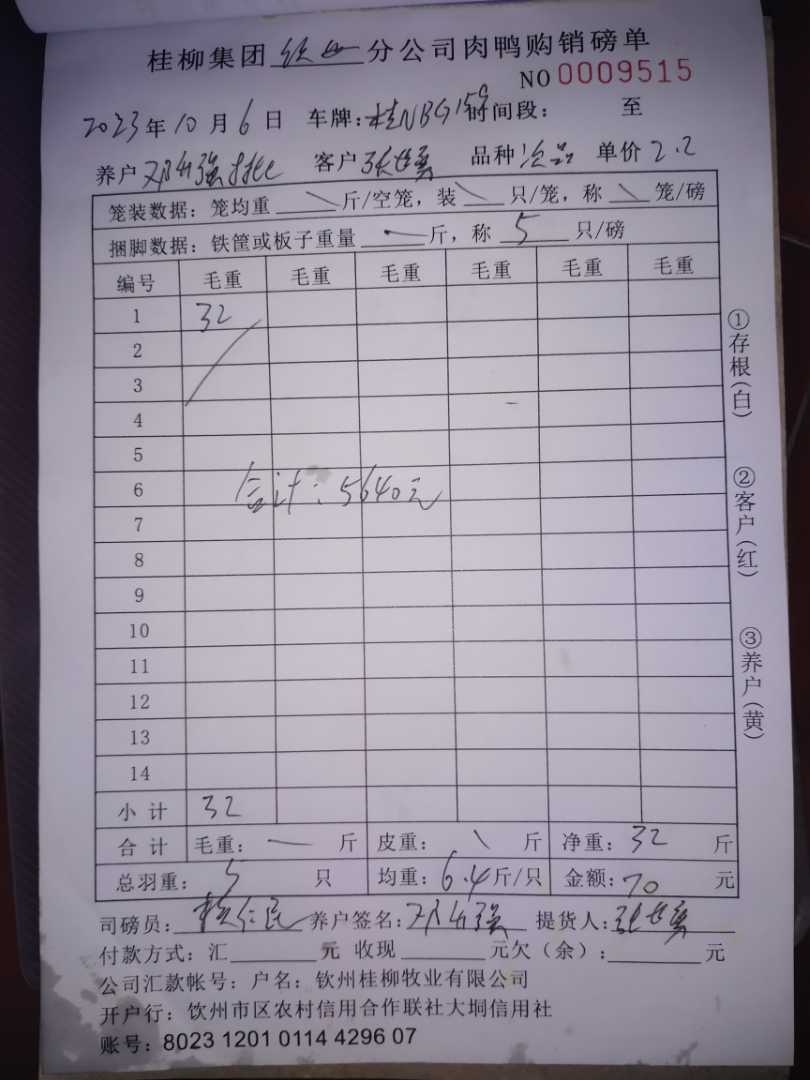 桂柳集团 钦州 分公司肉鸭购销磅单
NO 0009515
2023年10月6日 车牌：桂NBG159 时间段： 至
养户 邓 强 客户 张 品种 次品 单价 2.2
笼装数据：笼均重 斤/空笼，装 只/笼，称 笼/磅
捆脚数据：铁筐或板子重量 一 斤，称 5 只/磅
编号 毛重 毛重 毛重 毛重 毛重 毛重
1 32
2
3
4
5
6
合计：5640元
7
8
9
10
11
12
13
14
小计 32
合计 毛重： 一 斤 皮重： \ 斤 净重：32 斤
总羽重： 5 只 均重：6.4斤/只 金额：70 元
司磅员： 仁民 养户签名：邓 强 提货人：张
付款方式：汇 元 收现 元欠（余）： 元
公司汇款帐号：户名：钦州桂柳牧业有限公司
开户行：饮州市区农村信用合作联社大垌信用社
账号：8023 1201 0114 4296 07
①存根(白)
②客户(红)
③养户(黄)